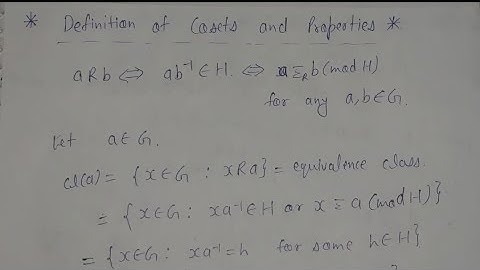 * Definition of Cosets and Properties *
aRb ⇔ ab⁻¹ ∈ H. ⇔ a ≡ᵣ b (mod H)
for any a, b ∈ G.
Let a ∈ G.
cl(a) = {x ∈ G : xRa} = equivalence class.
= {x ∈ G : xa⁻¹ ∈ H or x ≡ a (mod H)}
= {x ∈ G : xa⁻¹ = h for some h ∈ H}